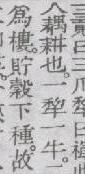 曰三爪犂曰
人耦耕也。一犂一牛。
爲樓。貯穀下種。故